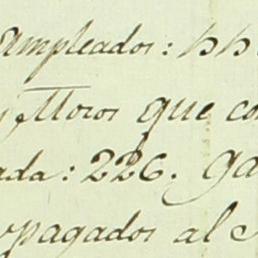 Ampleados:
Moros que co
ada: 226. ga
pagados al